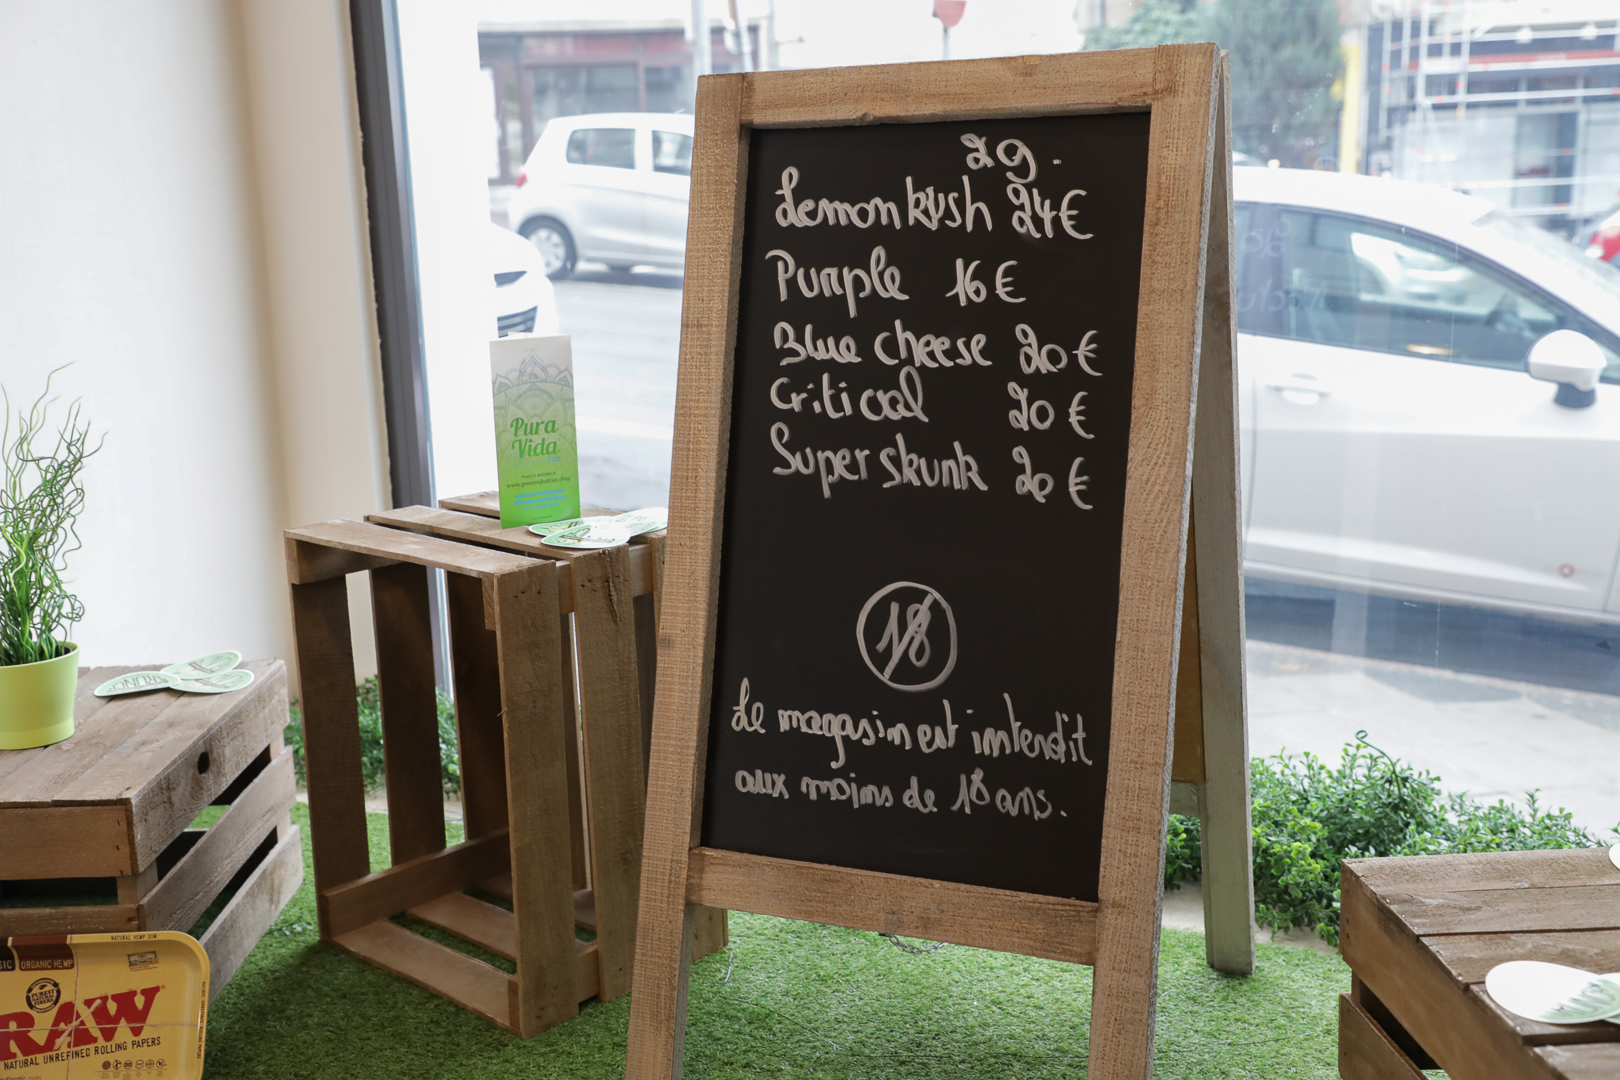 2g.
Lemon kush 24€
Purple 16€
Blue cheese 20€
Critical 20€
Super skunk 20€
18
Le magasin est interdit
aux moins de 18 ans.
Pura
Vida
ORGANIC HEMP
NATURAL HEMP GUM
RAW
NATURAL UNREFINED ROLLING PAPERS